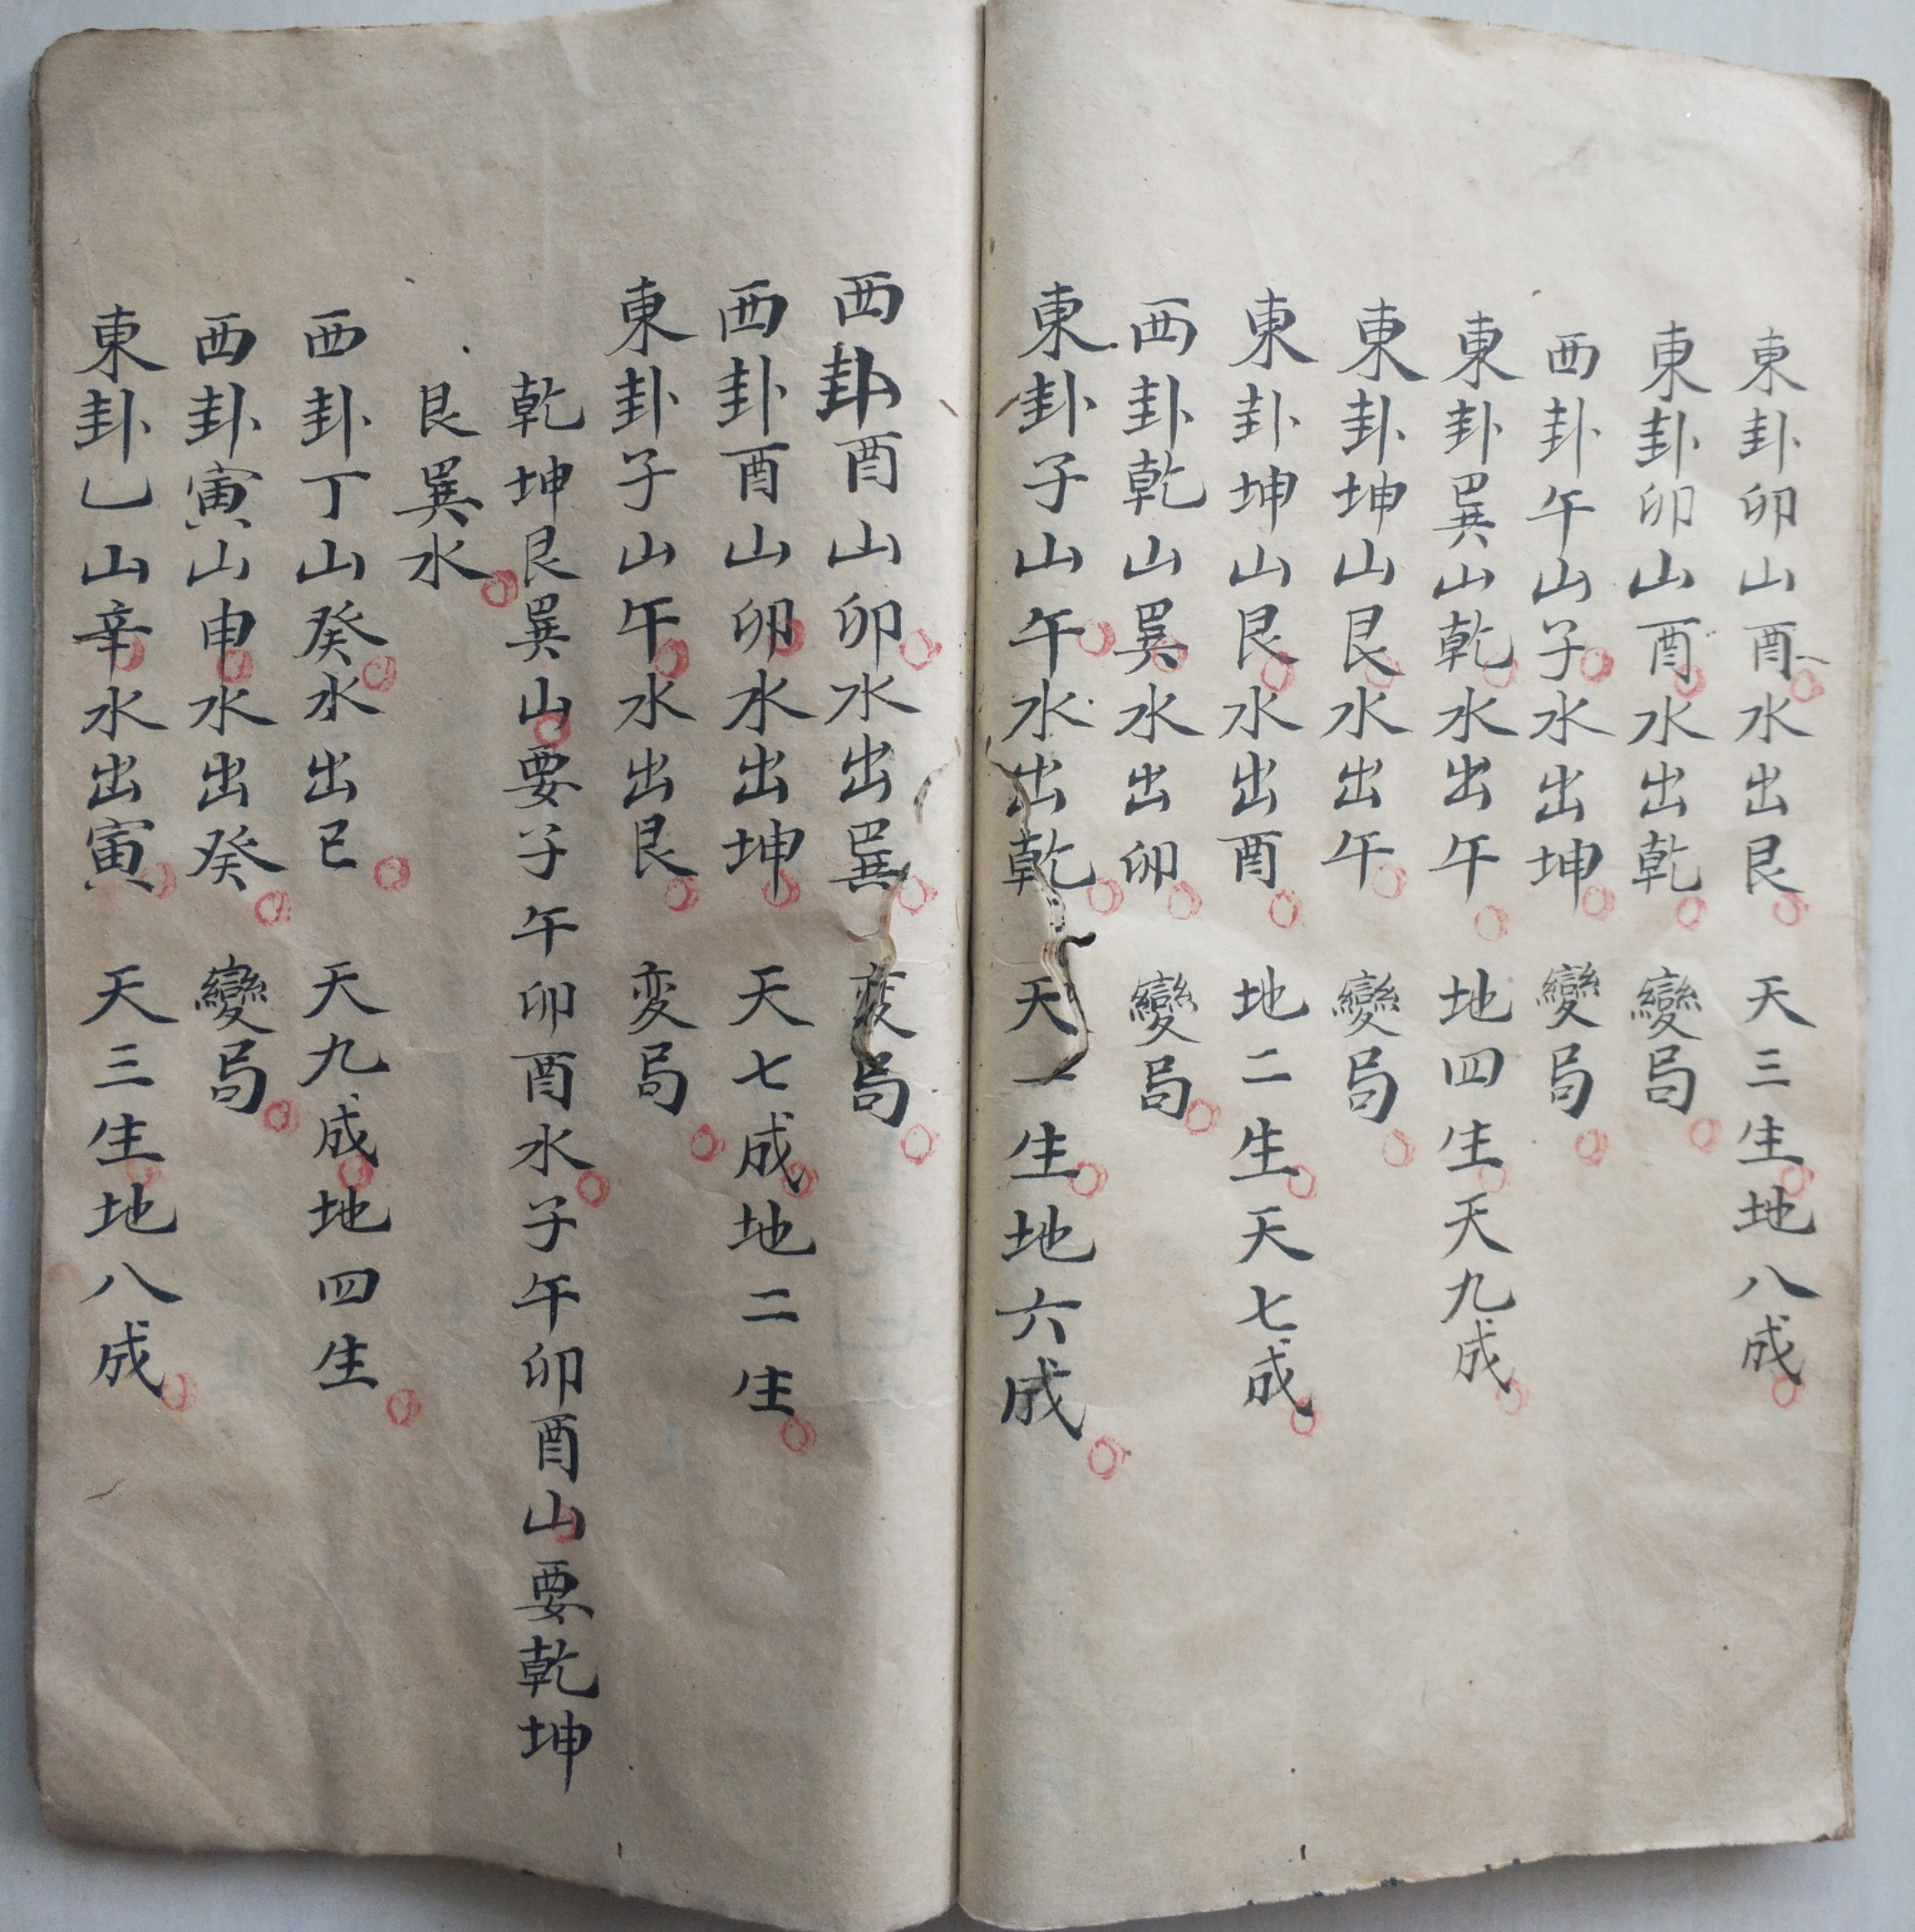 東卦卯山酉水出艮　天三生地八成
東卦卯山酉水出乾　變局
西卦午山子水出坤　變局
東卦巽山乾水出午　地四生天九成
東卦坤山艮水出午　變局
東卦坤山艮水出酉　地二生天七成
西卦乾山巽水出卯　變局
東卦子山午水出乾　天一生地六成
西卦酉山卯水出巽　変局
西卦酉山卯水出坤　天七成地二生
東卦子山午水出艮　変局
乾坤艮巽山要子午卯酉水子午卯酉山要乾坤
艮巽水
西卦丁山癸水出巳　天九成地四生
西卦寅山申水出癸　變局
東卦乙山辛水出寅　天三生地八成